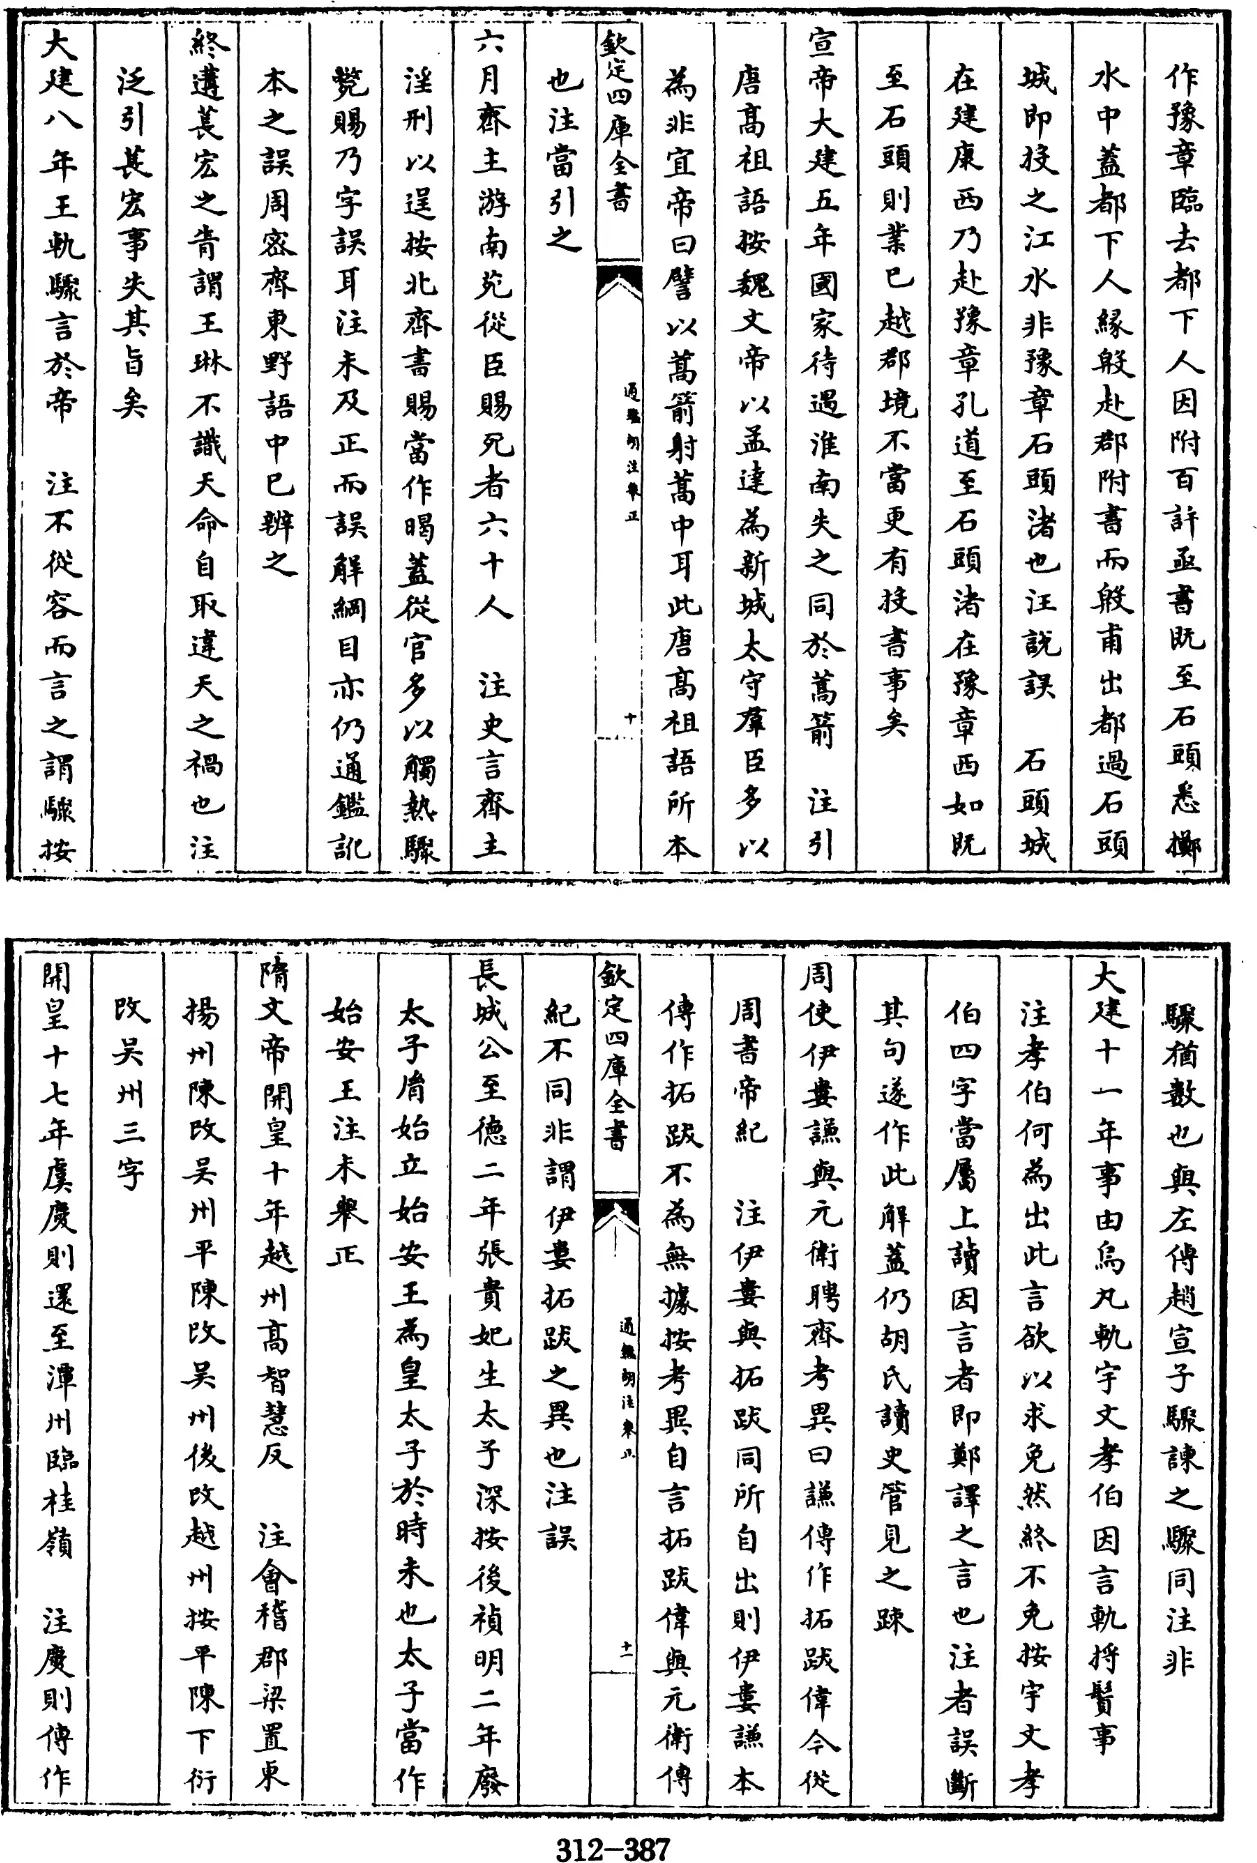 作豫章臨去都下人因附百許函書既至石頭悉擲
水中蓋都下人緣殷赴郡附書而殷甫出都過石頭
城即投之江水非豫章石頭渚也注說誤　石頭城
在建康西乃赴豫章孔道至石頭渚在豫章西如既
至石頭則業已越郡境不當更有投書事矣
宣帝大建五年國家待遇淮南失之同於蒿箭　注引
唐高祖語按魏文帝以孟達為新城太守羣臣多以
為非宜帝曰譬以蒿箭射蒿中耳此唐高祖語所本
欽定四庫全書
通鑑胡注舉正
十
也注當引之
六月齊主游南苑從臣賜死者六十人　注史言齊主
淫刑以逞按北齊書賜當作暍蓋從官多以觸熱驟
斃賜乃字誤耳注未及正而誤解綱目亦仍通鑑訛
本之誤周密齊東野語中已辨之
終遘萇宏之眚謂王琳不識天命自取違天之禍也注
泛引萇宏事失其旨矣
大建八年王軌驟言於帝　注不從容而言之謂驟按
驟猶數也與左傳趙宣子驟諫之驟同注非
大建十一年事由烏丸軌宇文孝伯因言軌捋鬚事
注孝伯何為出此言欲以求免然終不免按宇文孝
伯四字當屬上讀因言者即鄭譯之言也注者誤斷
其句遂作此解蓋仍胡氏讀史管見之疎
周使伊婁謙與元衛聘齊考異曰謙傳作拓跋偉今從
周書帝紀　注伊婁與拓跋同所自出則伊婁謙本
傳作拓跋不為無據按考異自言拓跋偉與元衛傳
欽定四庫全書
通鑑胡注舉正
十一
紀不同非謂伊婁拓跋之異也注誤
長城公至德二年張貴妃生太子深按後禎明二年廢
太子胤始立始安王為皇太子於時未也太子當作
始安王注未舉正
隋文帝開皇十年越州高智慧反　注會稽郡梁置東
揚州陳改吳州平陳改吳州後改越州按平陳下衍
改吳州三字
開皇十七年虞慶則還至潭州臨桂嶺　注慶則傳作
312-387